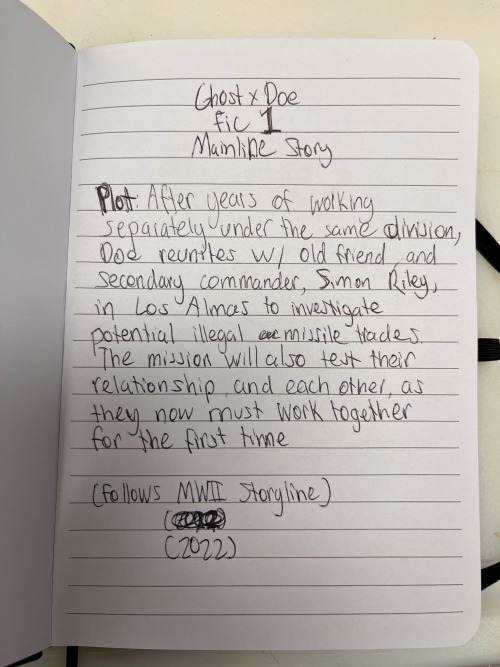 Ghost x Doe
fic 1
Mainline Story
Plot: After years of working
separately under the same division,
Doe reunites w/ old friend and
secondary commander, Simon Riley,
in Los Almas to investigate
potential illegal missile trades.
The mission will also test their
relationship, and each other, as
they now must work together
for the first time
(follows MWII Storyline)
(2022)